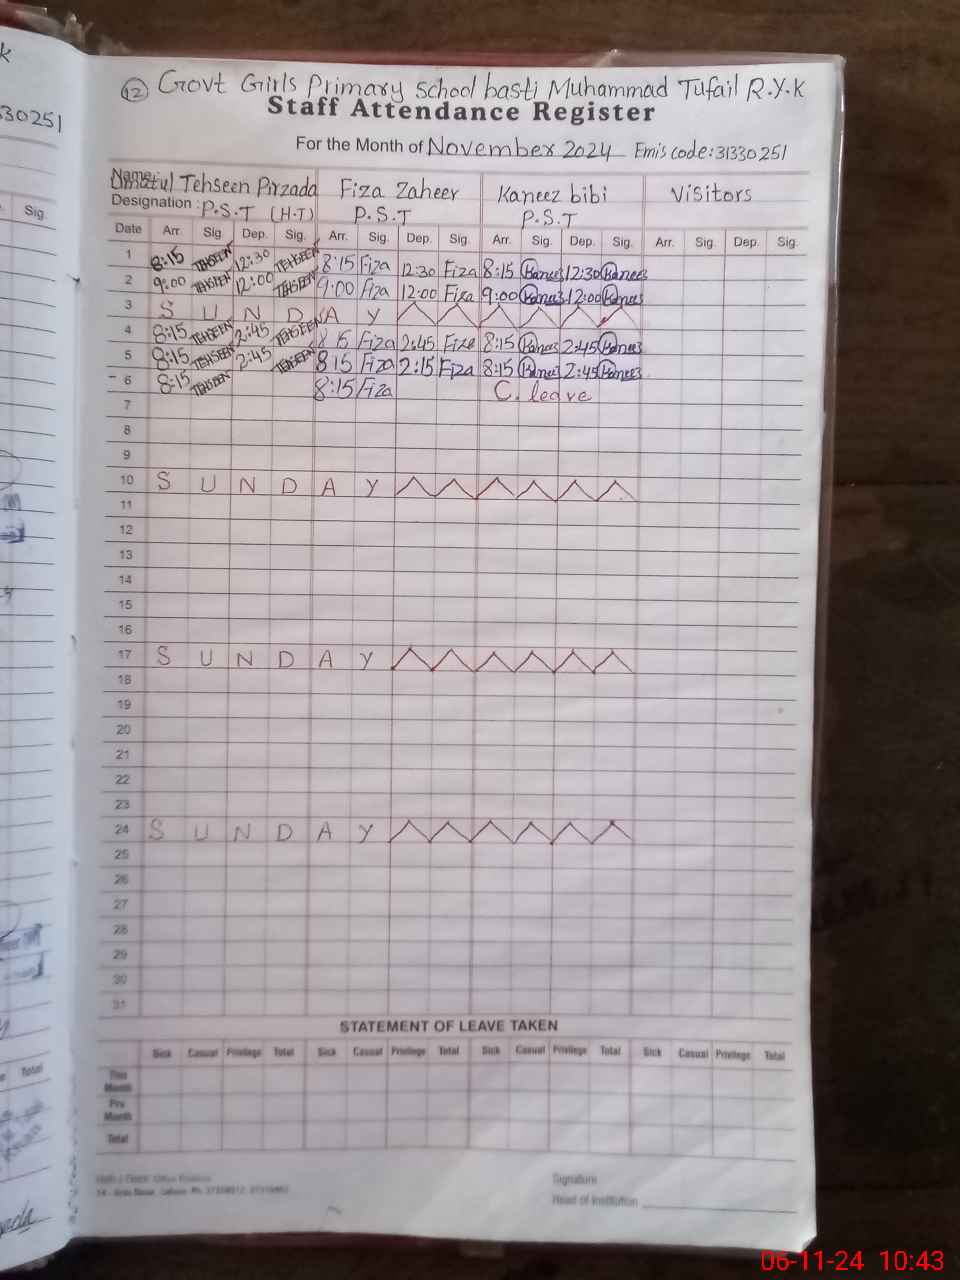 k
30251
Sig.
12 Govt Girls Primary School basti Muhammad Tufail R.Y.K
Staff Attendance Register
For the Month of November 2024 Emis code: 31330251
Name: Umatul Tehseen Pirzada Fiza Zaheer Kaneez bibi Visitors
Designation: P.S.T (H.T) P.S.T P.S.T
Date Arr. Sig. Dep. Sig. Arr. Sig. Dep. Sig. Arr. Sig. Dep. Sig. Arr. Sig. Dep. Sig.
1 8:15 TEHSEEN 12:30 TEHSEEN 8:15 Fiza 12:30 Fiza 8:15 Kaneez 12:30 Kaneez
2 9:00 TEHSEEN 12:00 TEHSEEN 9:00 Fiza 12:00 Fiza 9:00 Kaneez 12:00 Kaneez
3 S U N D A Y
4 8:15 TEHSEEN 2:45 TEHSEEN 8 15 Fiza 2:45 Fiza 8:15 Kaneez 2:45 Kaneez
5 8:15 TEHSEEN 2:45 TEHSEEN 8 15 Fiza 2:15 Fiza 8:15 Kaneez 2:45 Kaneez
6 8:15 TEHSEEN 8:15 Fiza C. leave
7
8
9
10 S U N D A Y
11
12
13
14
15
16
17 S U N D A Y
18
19
20
21
22
23
24 S U N D A Y
25
26
27
28
29
30
31
STATEMENT OF LEAVE TAKEN
Sick Casual Privilege Total Sick Casual Privilege Total Sick Casual Privilege Total Sick Casual Privilege Total
This Month
Prv Month
Total
Total
Signature
Head of Institution
06-11-24 10:43